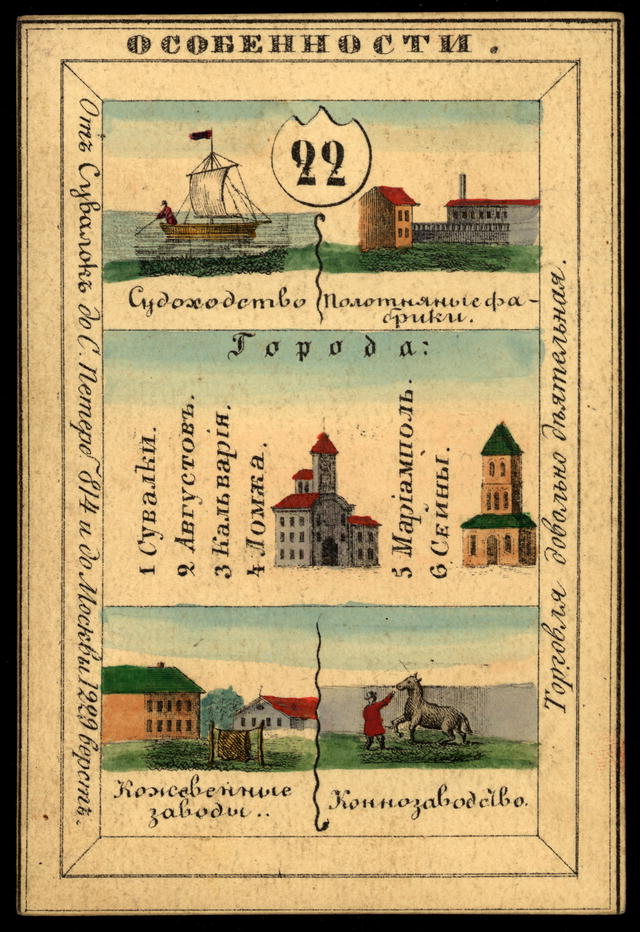 ОСОБЕННОСТИ.
22
Судоходство
Полотняные фа-
брики.
Города:
1 Сувалки.
2 Августовъ.
3 Кальварія.
4 Ломжа.
5 Маріамполь.
6 Сейны.
Кожевенные
заводы..
Коннозаводство.
Отъ Сувалокъ до С. Петерб 814 и до Москвы 1299 верстъ.
Торговля довольно дѣятельная.